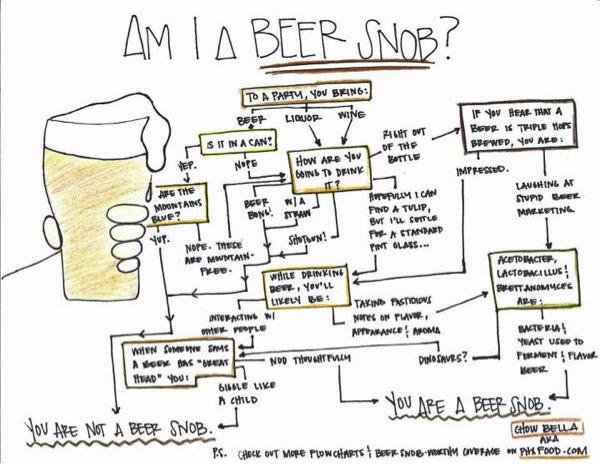 AM I A BEER SNOB?
TO A PARTY, YOU BRING:
BEER
LIQUOR
WINE
IS IT IN A CAN?
YEP.
NOPE
ARE THE
MOUNTAINS
BLUE?
YUP.
NOPE. THESE
ARE MOUNTAIN-
FREE.
HOW ARE YOU
GOING TO DRINK
IT?
BEER
BONG!
W/A
STRAW
SHOTGUN!
RIGHT OUT
OF THE
BOTTLE
HOPEFULLY I CAN
FIND A TULIP,
BUT I'LL SETTLE
FOR A STANDARD
PINT GLASS...
IF YOU HEAR THAT A
BEER IS TRIPLE HOPS
BREWED, YOU ARE:
IMPRESSED.
LAUGHING AT
STUPID BEER
MARKETING.
WHILE DRINKING
BEER, YOU'LL
LIKELY BE:
INTERACTING W/
OTHER PEOPLE
TAKING FASTIDIOUS
NOTES ON FLAVOR,
APPEARANCE & AROMA
ACETOBACTER,
LACTOBACILLUS &
BRETTANOMYCES
ARE:
DINOSAURS?
BACTERIA &
YEAST USED TO
FERMENT & FLAVOR
BEER
WHEN SOMEONE SAYS
A BEER HAS "GREAT
HEAD" YOU:
NOD THOUGHTFULLY
GIGGLE LIKE
A CHILD
YOU ARE NOT A BEER SNOB.
YOU ARE A BEER SNOB.
CHOW BELLA
AKA
P.S. CHECK OUT MORE FLOWCHARTS & BEER SNOB-WORTHY COVERAGE ON PHXFOOD.COM